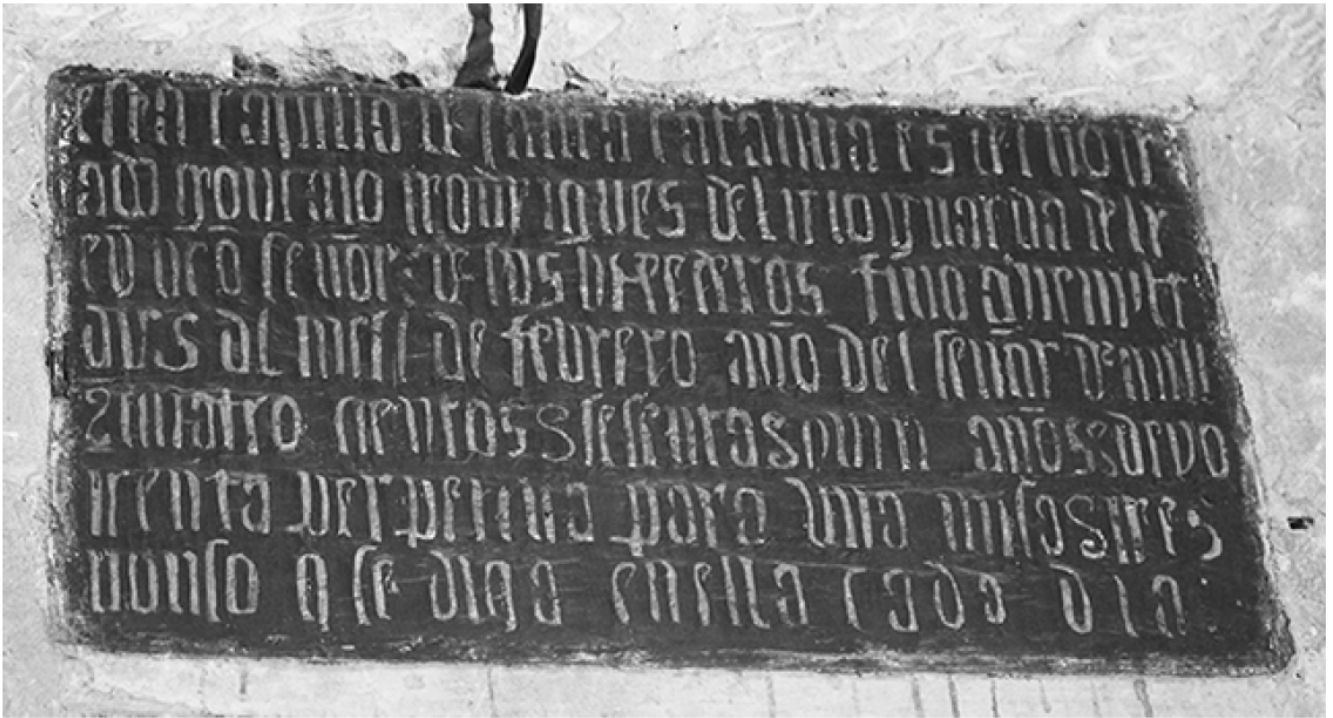 esta capilla de santa catalina es del honr
ado gonçalo rrodrigues del rio guarda del r
ey nrō señor e de sus herederos fino
dias del mes de febrero año del señor de mill
z quatro cientos z sesenta z un años z dexo
rrenta perpetua para una misa z rres
ponso q se diga en ella cada dia